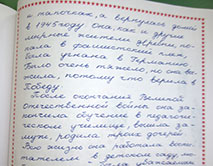 и палочкам, а вернулась домой
в 1945 году она, как и другие
мирные жители деревни, по-
пала в фашистский плен,
была угнана в Германию.
Было очень тяжело, но она вы-
жила, потому что верила в
Победу.
После окончания Великой
Отечественной войны за-
кончила обучение в педагоги-
ческом училище, вышла за-
муж, родила троих дочерей.
Всю жизнь она работала воспи-
тателем в детском саду, но